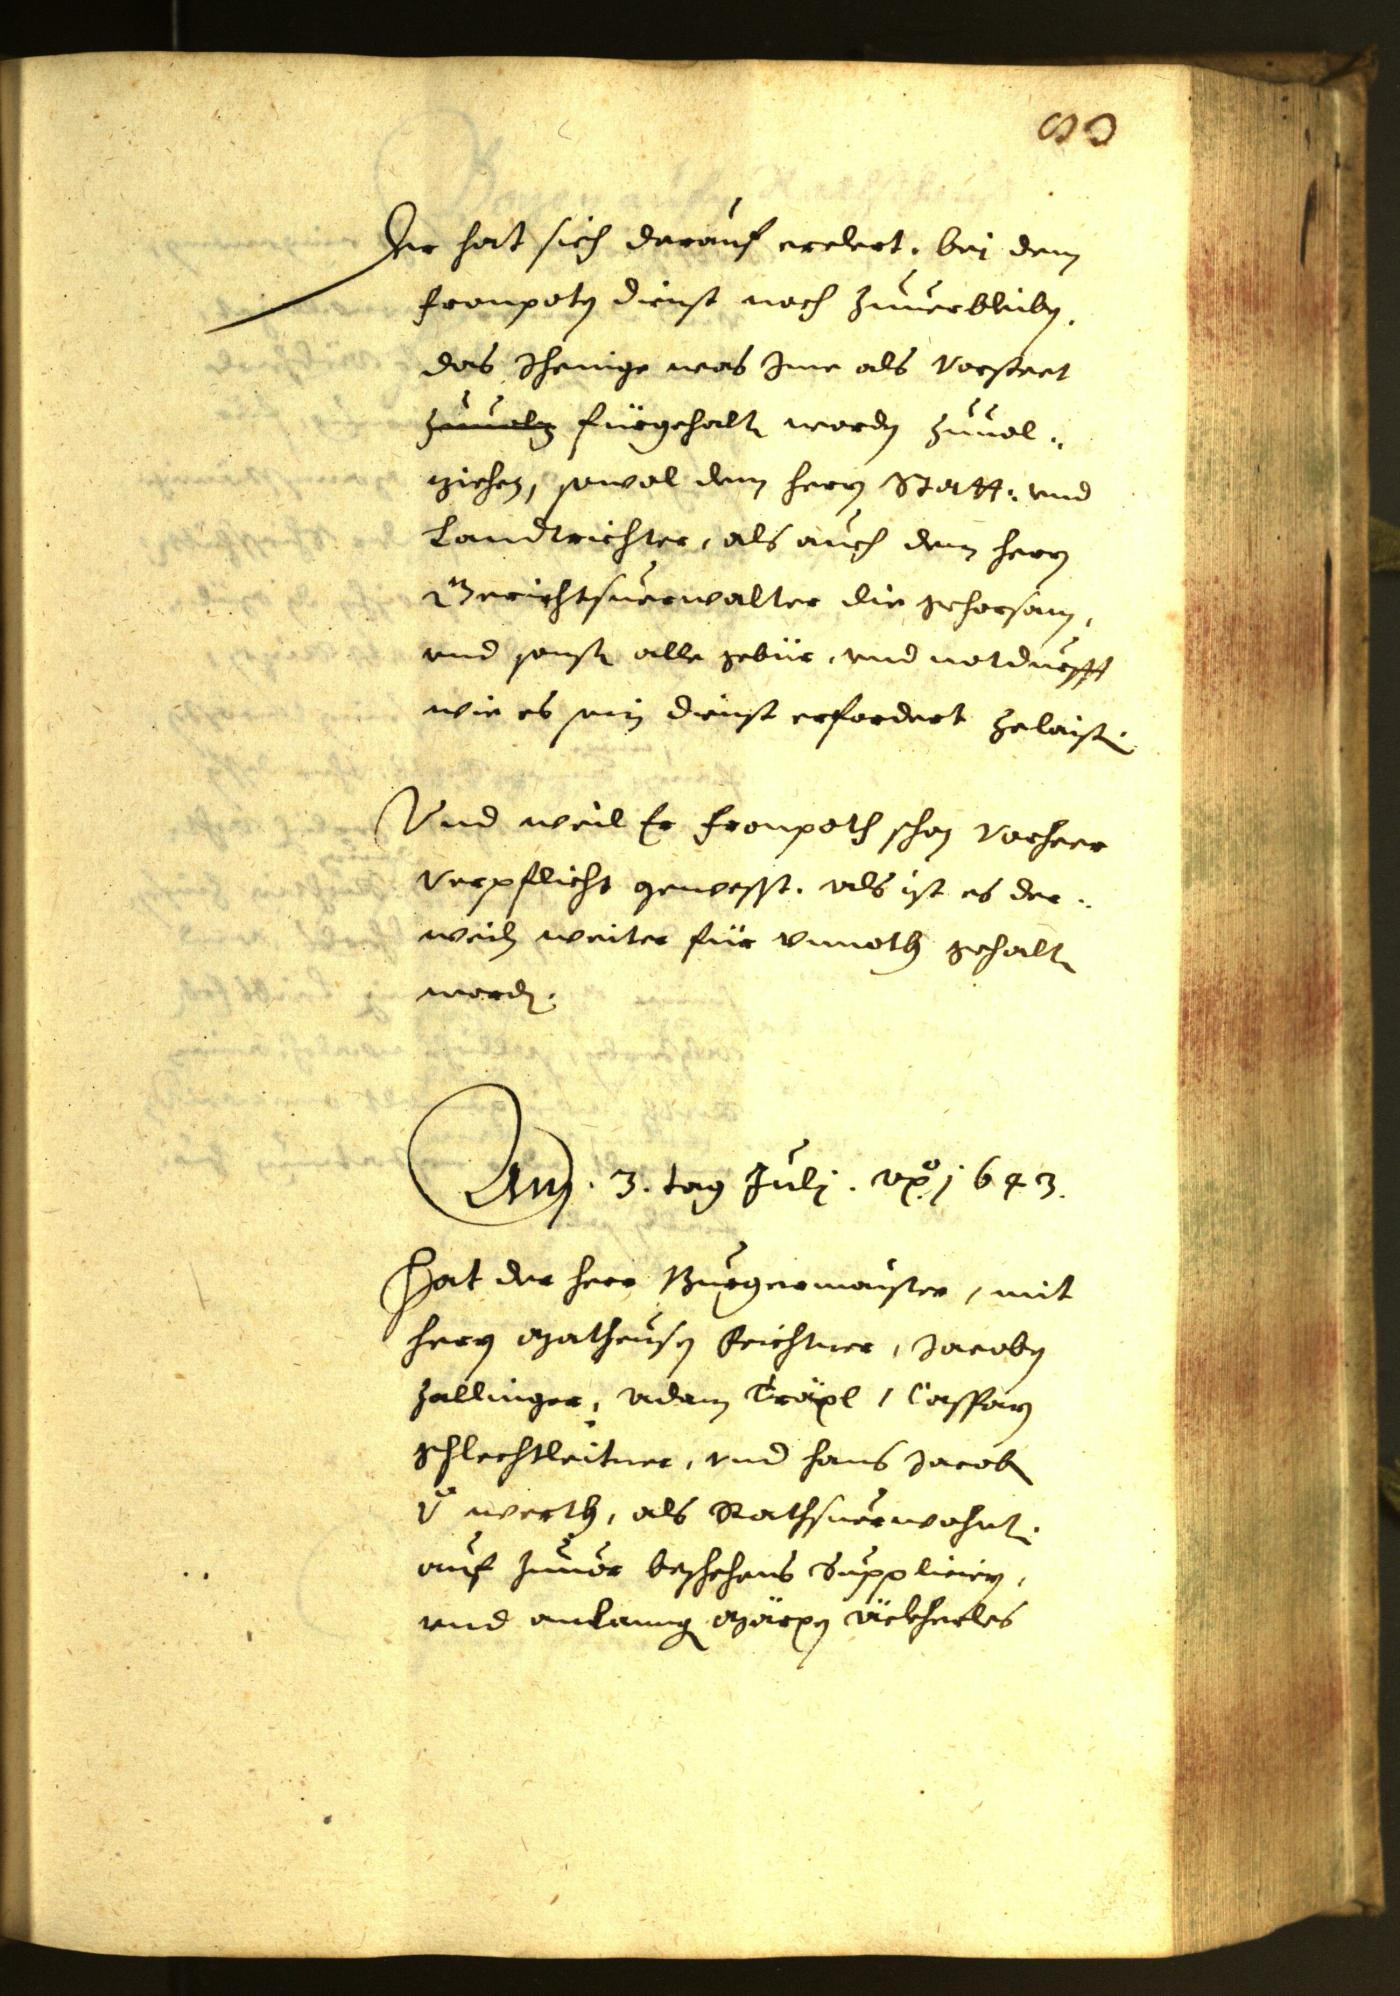 80
Der hat sich darauf erclert. bej dem
Fronpoten dienst noch zuuerbleiben.
das Jhenige was Jme als Vorsteet
zuuolz fürgehalten worden zuuol„
ziehen, sowol dem herrn Statt„ vnd
Landtrichter, als auch dem herrn
Gerichtsuerwalter die gehorsam,
vnd sonsten alle gebür, vnd notdurfft
wie es sein dienst erfordert zelaisten.
Vnd weil Er Fronpoth schon Vorheer
Verpflicht gewesst. als ist es der„
weilen weiter für vnnoth gehalten
worden.
Am. 3. tag Julj. Ao. 1643.
Hat der herr Burgermaister, mit
herrn Matheusen Feichtner, Jacoben
Zallinger, Adam Träpl, Casparn
Schlechtleitner, vnd hans Jacoben
v. werth, als Rathsuerwohnten.
auf zuuor beschehens Suppliciern,
vnd anlanng Märxen Äckherles